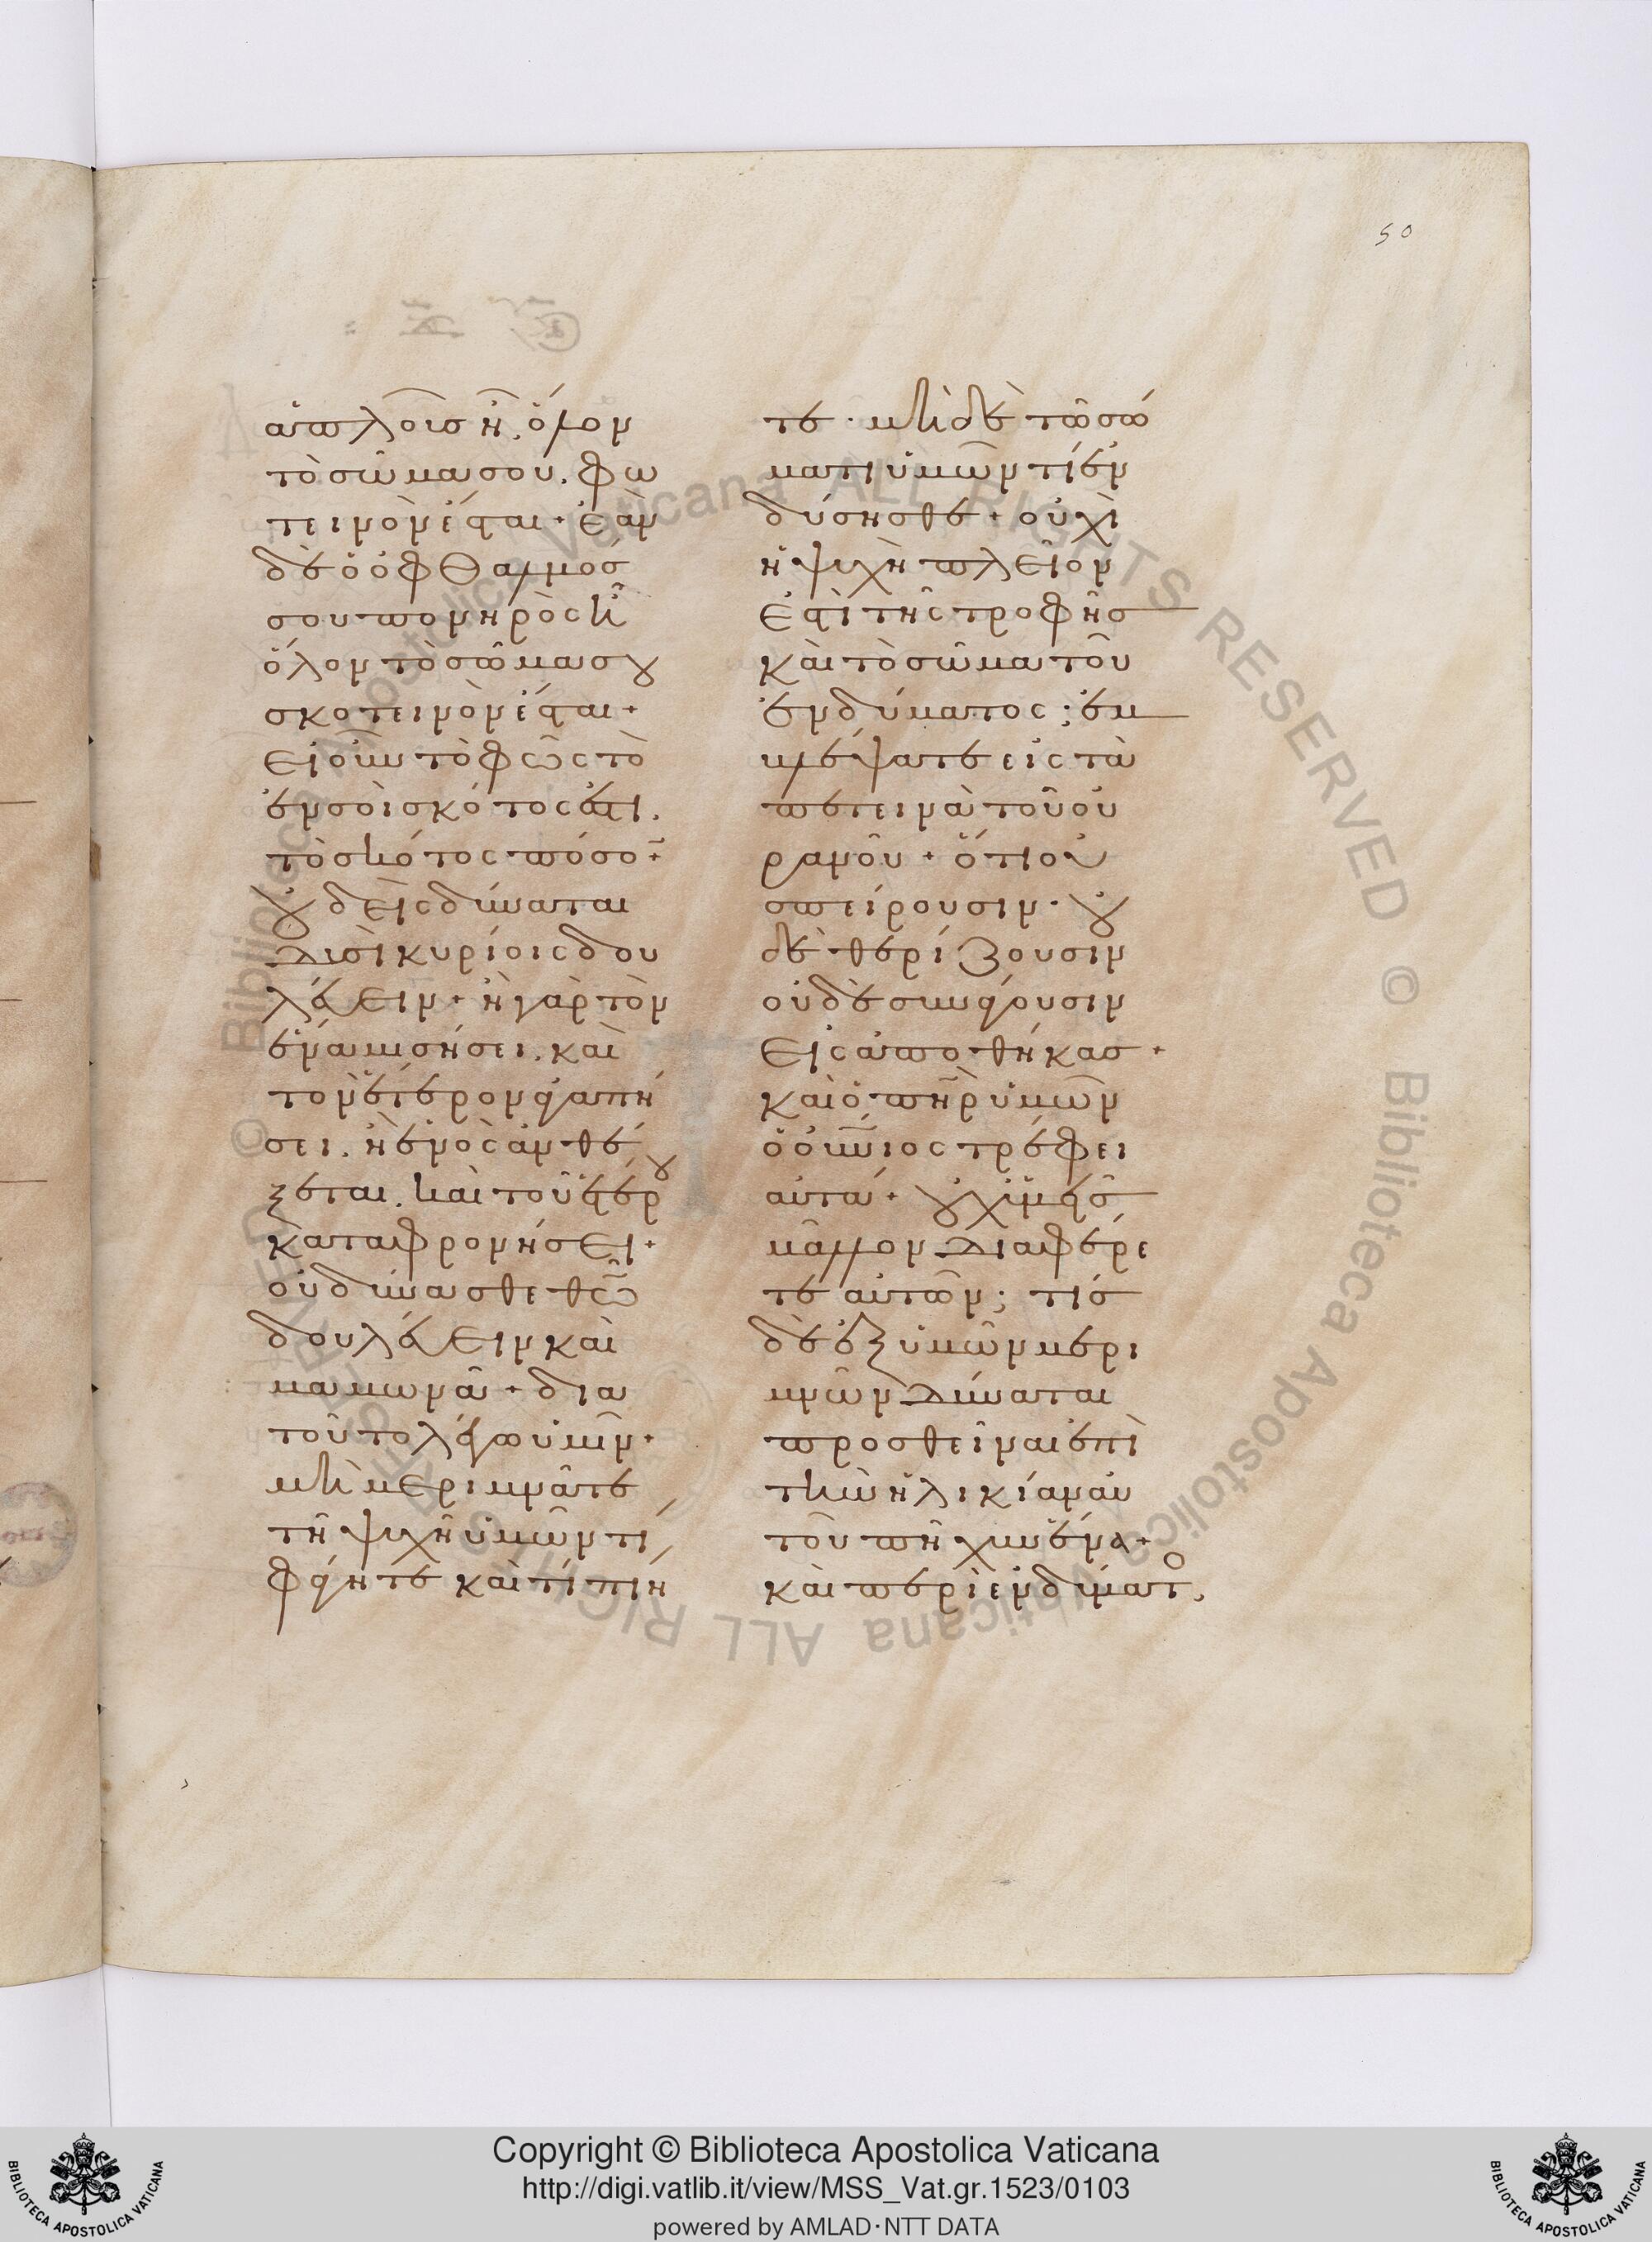 50
ἁπλοῦς ἦ. ὅλον
τὸ σῶμα σου. φω
τεινὸν ἔσται· ἐὰν
δὲ ὁ ὀφθαλμός
σου πονηρὸς ἦ
ὅλον τὸ σῶμα σου
σκοτεινὸν ἔσται·
εἰ οὖν τὸ φῶς τὸ
ἐν σοὶ σκότος ἐστι.
τὸ σκότος πόσον·
οὐδεὶς δύναται
δυσὶ κυρίοις δου
λεύειν· ἢ γὰρ τὸν
ἕνα μισήσει. καὶ
τὸν ἕτερον ἀγαπή
σει. ἢ ἑνὸς ἀνθέ
ξεται. καὶ τοῦ ἑτέρου
καταφρονήσει·
οὐ δύνασθε θω̅
δουλεύειν καὶ
μαμωνᾶ· δια
τοῦτο λέγω ὑμῖν·
μὴ μεριμνᾶτε
τῆ ψυχῆ ὑμῶν τί
φάγητε καὶ τί πίη
τε· μὴ δὲ τῶ σώ
ματι ὑμῶν τί ἐν
δύσησθε· οὐχὶ
ἡ ψυχὴ πλεῖον
ἐστὶ τῆς τροφῆς
καὶ τὸ σῶμα τοῦ
ἐνδύματος; ἐμ
βλέψατε εἰς τὰ
πετεινὰ τοῦ οὐ
ρανοῦ· ὅτι οὐ
σπείρουσιν· οὐ
δὲ θερίζουσιν
οὐδὲ συνάγουσιν
εἰς ἀποθήκας·
καὶ ὁ πη̅ρ ὑμῶν
ὁ οὐ̅νιος τρέφει
αὐτά· οὐχ ὑμεῖς
μᾶλλον διαφέρε
τε αὐτῶν; τίς
δὲ ἐξ ὑμῶν μερι
μνῶν δύναται
προσθεῖναι ἐπὶ
τὴν ἡλικίαν αὐ
τοῦ πῆχυν ἕνα·
καὶ περὶ ἐνδύματος
Copyright © Biblioteca Apostolica Vaticana
http://digi.vatlib.it/view/MSS_Vat.gr.1523/0103
powered by AMLAD·NTT DATA